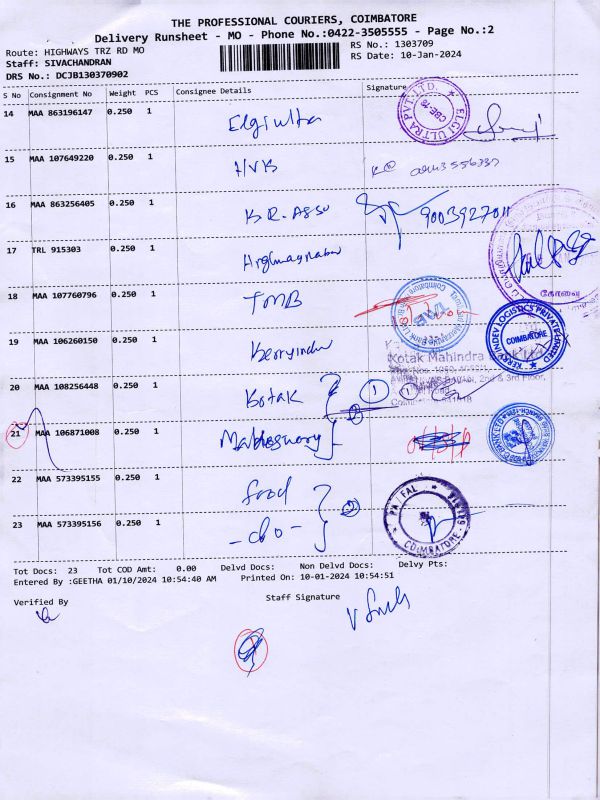 THE PROFESSIONAL COURIERS, COIMBATORE
Delivery Runsheet - MO - Phone No.:0422-3505555 - Page No.:2
Route: HIGHWAYS TRZ RD MO
RS No.: 1303709
Staff: SIVACHANDRAN
RS Date: 10-Jan-2024
DRS No.: DCJB130370902
S No Consignment No Weight PCS Consignee Details Signature
14 MAA 863196147 0.250 1 Elgi ultra
ELGI ULTRA PVT. LTD. CBE-18
15 MAA 107649220 0.250 1 HVB
16 MAA 863256405 0.250 1 K.R. Asso 9003927011
17 TRL 915303 0.250 1
கோவை
18 MAA 107760796 0.250 1 TMB
TMB Coimbatore
19 MAA 106260150 0.250 1 Kerryindev
KERRY INDEV LOGISTICS PRIVATE LIMITED COIMBATORE
Kotak Mahindra
2nd & 3rd Floor,
20 MAA 108256448 0.250 1 Kotak 1 1
2
21 MAA 106871008 0.250 1
22 MAA 573395155 0.250 1 food
2
23 MAA 573395156 0.250 1 - do -
PA / FAL COIMBATORE
Tot Docs: 23 Tot COD Amt: 0.00 Delvd Docs: Non Delvd Docs: Delvy Pts:
Entered By :GEETHA 01/10/2024 10:54:40 AM Printed On: 10-01-2024 10:54:51
Verified By
Staff Signature